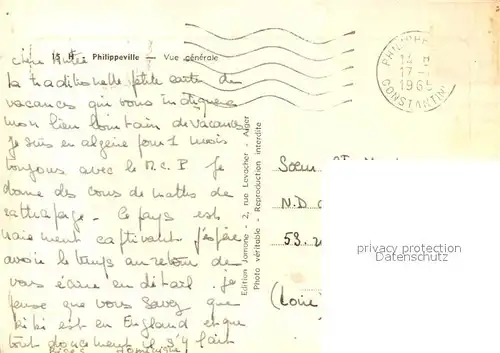 15 H Philippeville — Vue générale
chère
la traditionnelle petite carte de
vacances qui vous indiquera
mon lieu lointain de vacances
je suis en algérie pour 1 mois
toujours avec le M.C.P Je
donne des cours de maths de
rattrapage - Ce pays est
vraiment captivant j'espère
avoir le temps au retour de
vous écrire en détail. je
pense que vous savez que
bibi est en England et que
tout doucement il s'y fait
Bises Dominique
Edition Jomone - 2, rue Levacher - Alger
Photo véritable - Reproduction interdite
PHILIPPE
17
1965
CONSTANTIN
Soeur St
N.D
53.
(Loire
privacy protection
Datenschutz